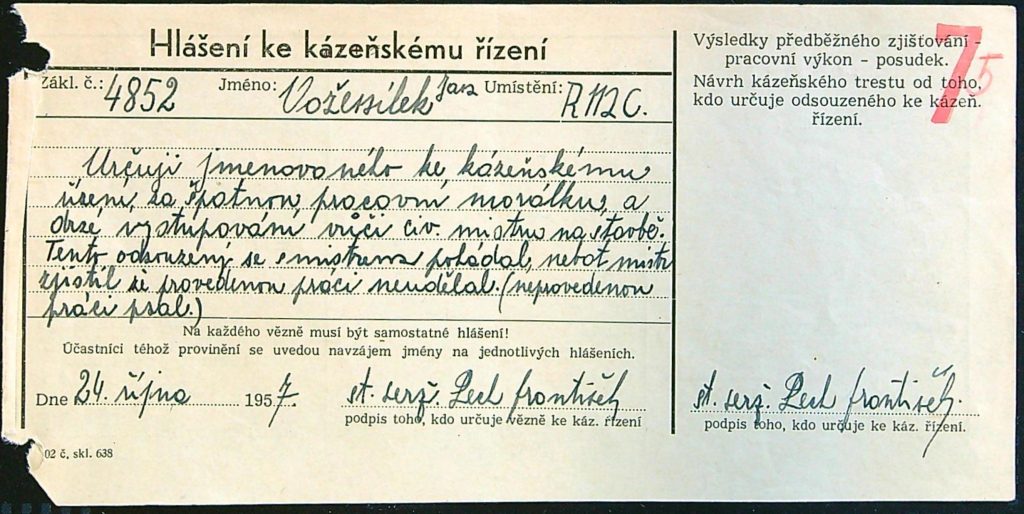 Hlášení ke kázeňskému řízení
Zákl. č.: 4852 Jméno: Vožessílek Jan Umístění: R112C.
Určuji jmenovaného ke kázeňskému
řízení, za špatnou pracovní morálku, a
drzé vystupování vůči civ. mistru na stavbě.
Tento odsouzený se s mistrem pohádal, neboť mistr
zjistil že provedenou práci neudělal. (neprovedenou
práci psal.)
Na každého vězně musí být samostatné hlášení!
Účastníci téhož provinění se uvedou navzájem jmény na jednotlivých hlášeních.
Dne 24. října 1957. st. serž. Pech František
podpis toho, kdo určuje vězně ke káz. řízení
02 č. skl. 638
Výsledky předběžného zjišťování -
pracovní výkon - posudek.
Návrh kázeňského trestu od toho,
kdo určuje odsouzeného ke kázeň.
řízení.
7 5
st. serž. Pech František.
podpis toho, kdo určuje ke káz. řízení.